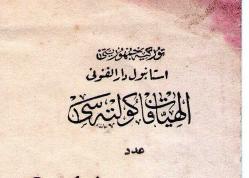 توركیه جمهوریتی
استانبول دار الفنونی
الهیات فاكولته سی
عدد